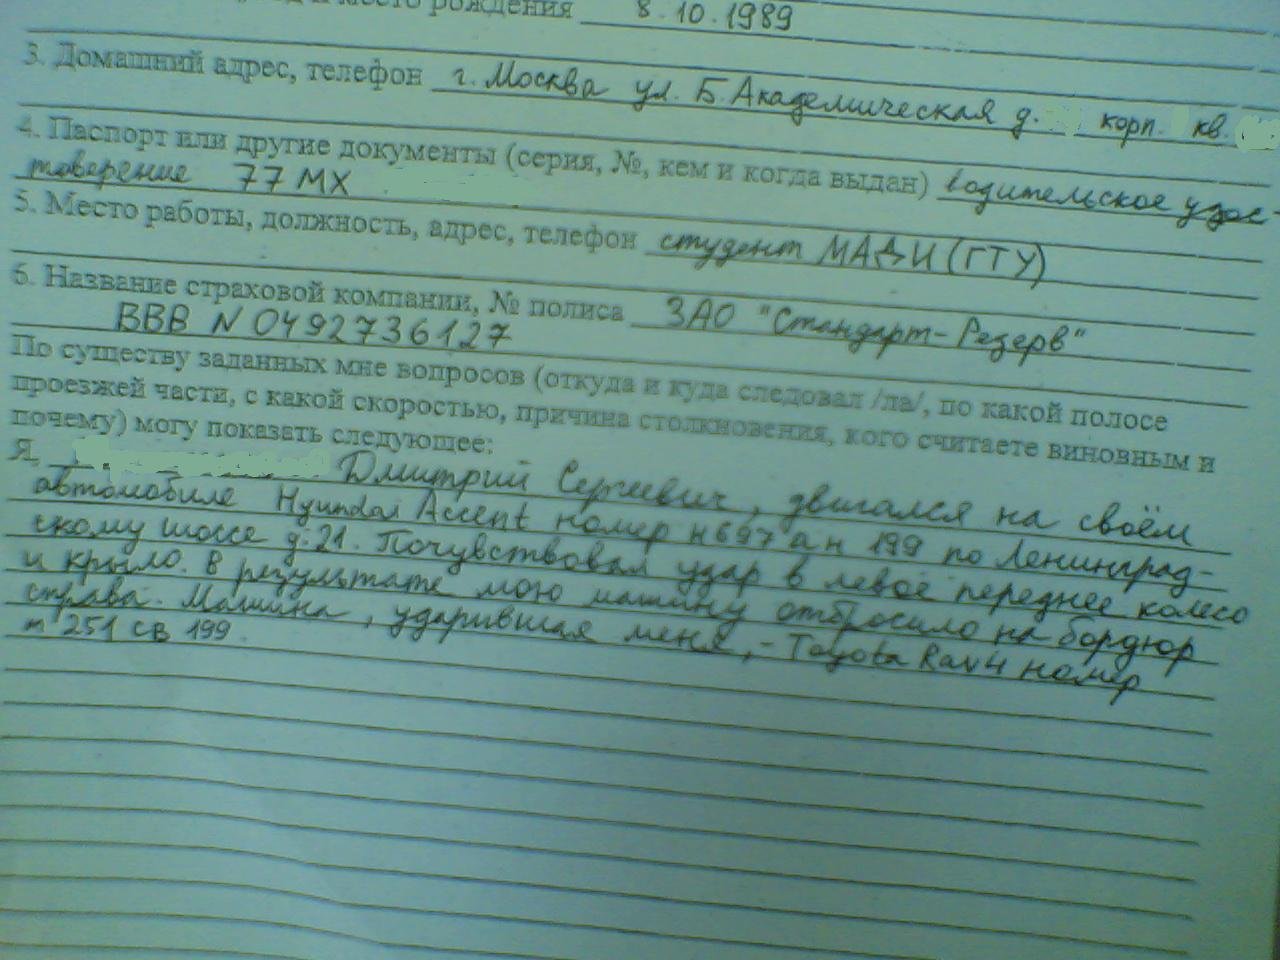 место рождения 8.10.1989
3. Домашний адрес, телефон г. Москва ул. Б. Академическая д. корп. кв.
4. Паспорт или другие документы (серия, №, кем и когда выдан) водительское удос-
товерение 77 МХ
5. Место работы, должность, адрес, телефон студент МАДИ (ГТУ)
6. Название страховой компании, № полиса ЗАО "Стандарт-Резерв"
ВВВ N 0492736127
По существу заданных мне вопросов (откуда и куда следовал /ла/, по какой полосе
проезжей части, с какой скоростью, причина столкновения, кого считаете виновным и
почему) могу показать следующее:
Я, Дмитрий Сергеевич, двигался на своём
автомобиле Hyundai Accent номер н 697 ан 199 по Ленинград-
скому шоссе д. 21. Почувствовал удар в левое переднее колесо
и крыло. В результате мою машину отбросило на бордюр
справа. Машина, ударившая меня, - Toyota Rav 4 номер
т 251 св 199.